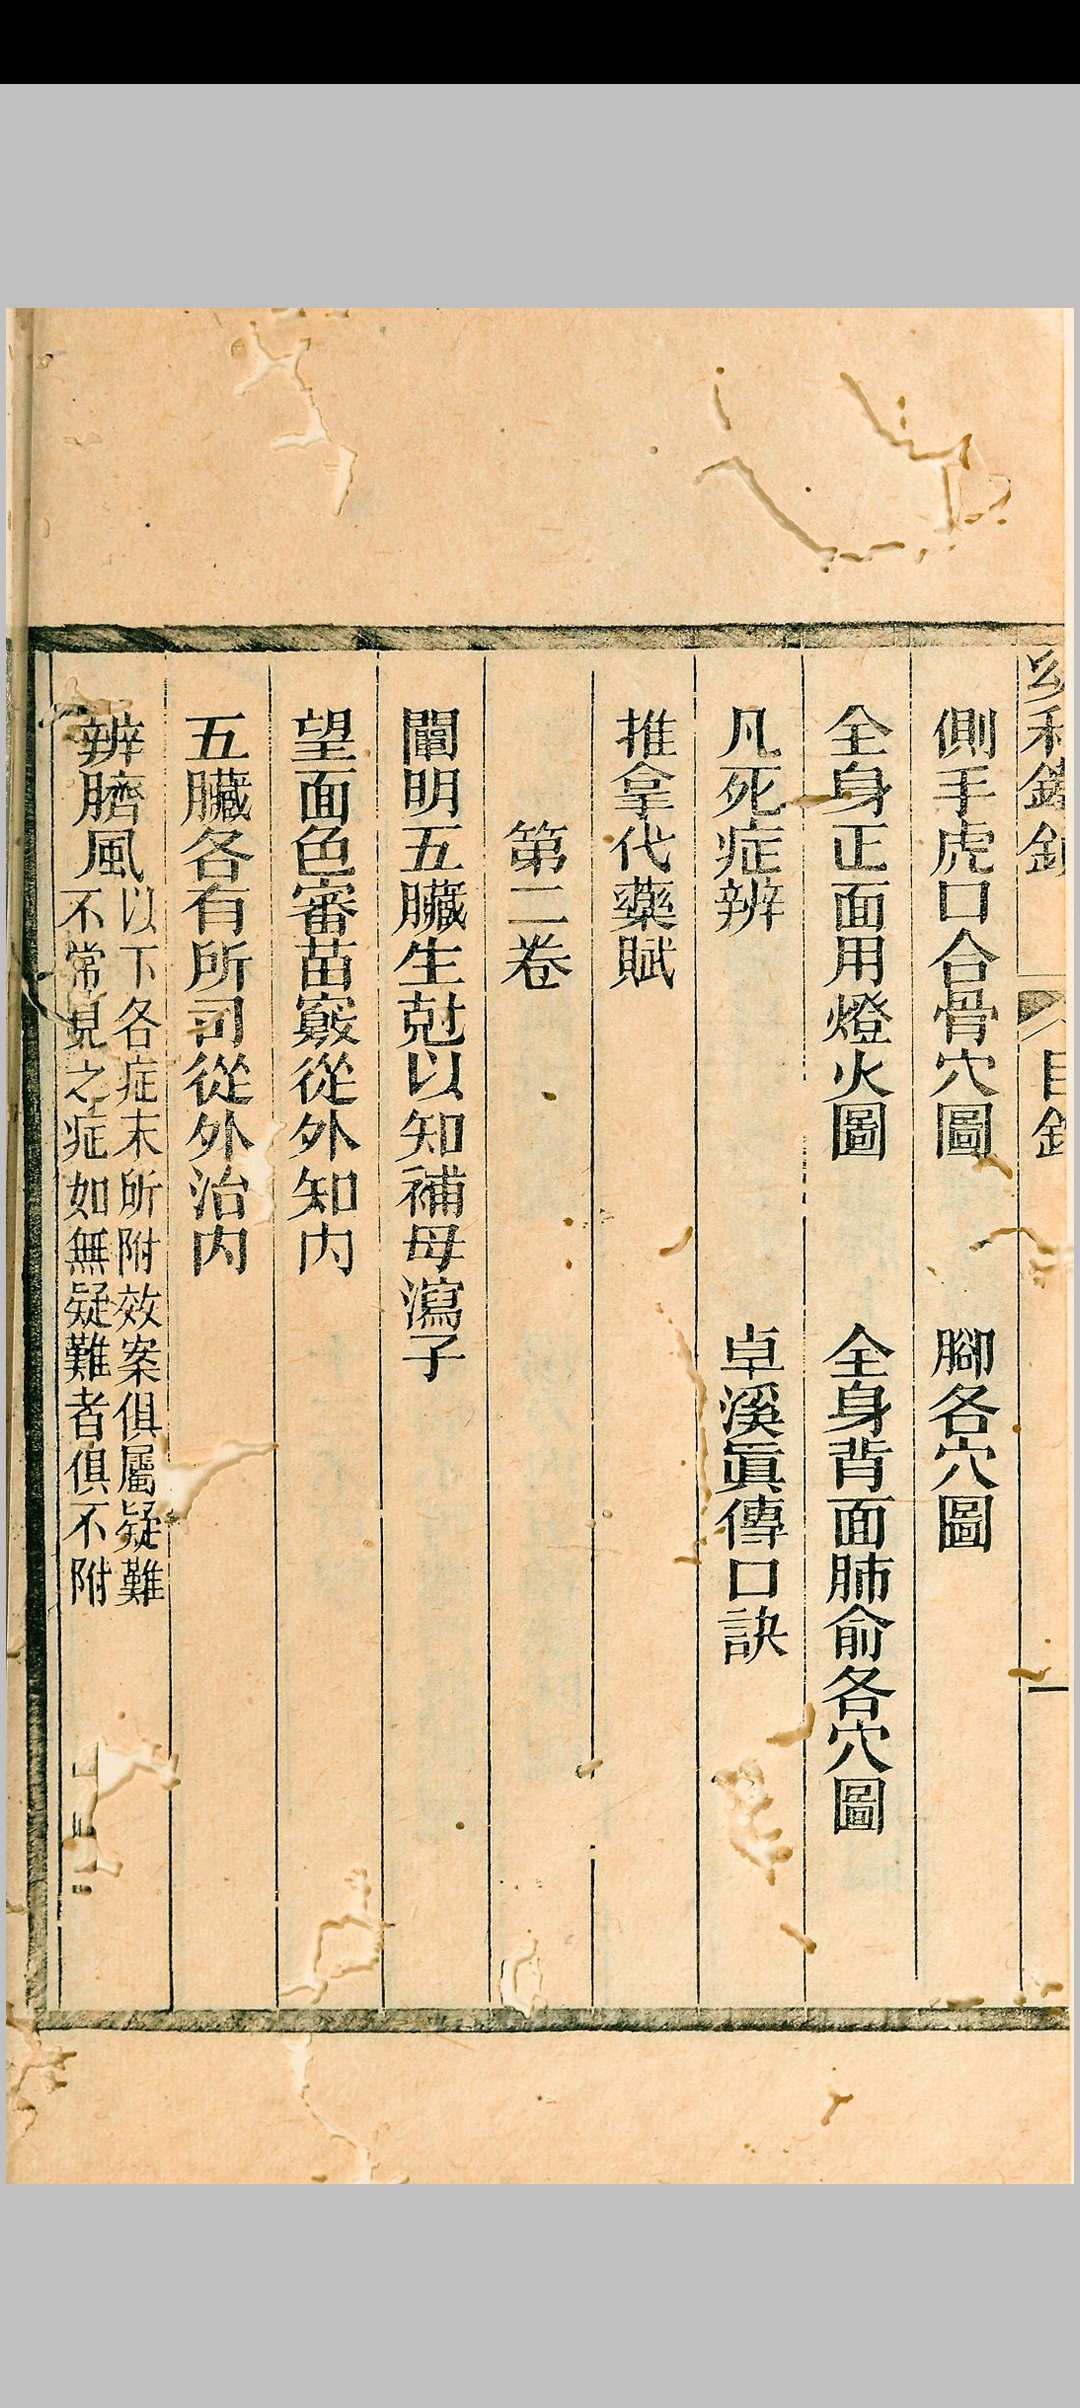 幼科鐵鏡 目錄 一
側手虎口合骨穴圖 腳各穴圖
全身正面用燈火圖 全身背面肺俞各穴圖
凡死症辨 卓溪眞傳口訣
推拿代藥賦
第二卷
闡明五臟生尅以知補母瀉子
望面色審苗竅從外知內
五臟各有所司從外治內
辨臍風
以下各症末所附效案俱屬疑難
不常見之症如無疑難者俱不附